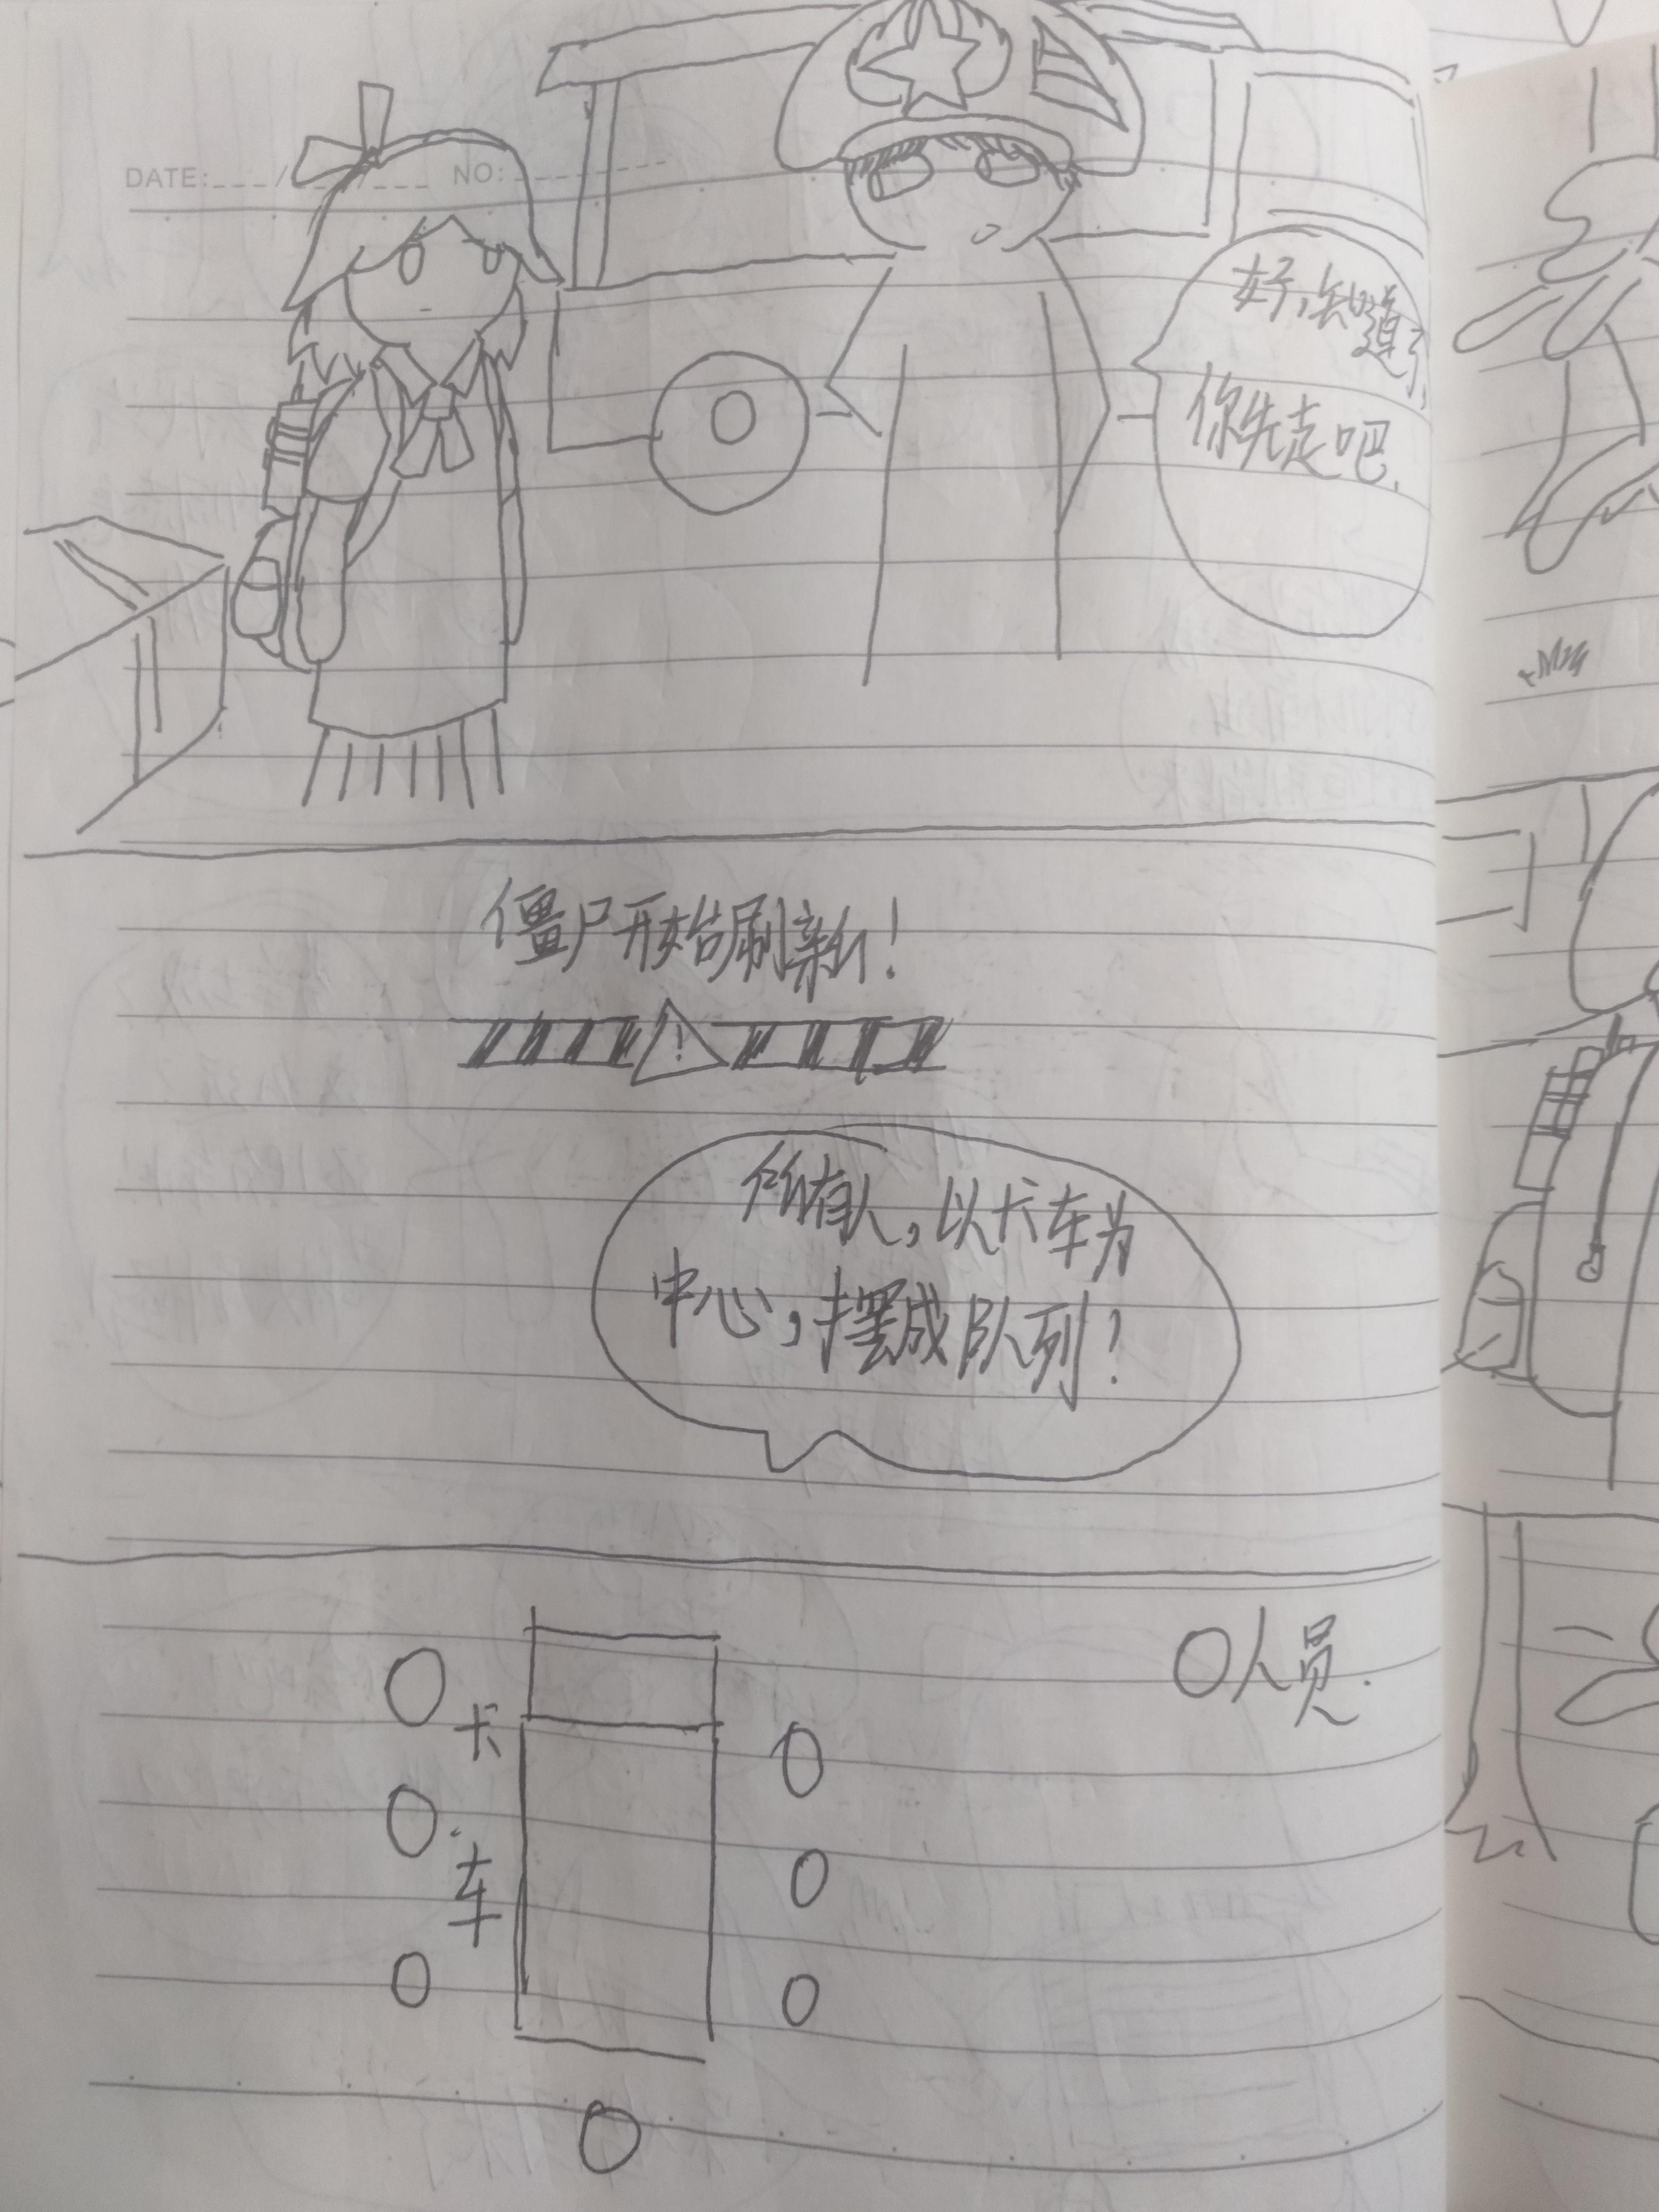 DATE:___/___/___ NO:
好,知道了,
你先走吧.
僵尸开始刷新!
!
所有人,以卡车为
中心,摆成队列!
人员.
卡
车